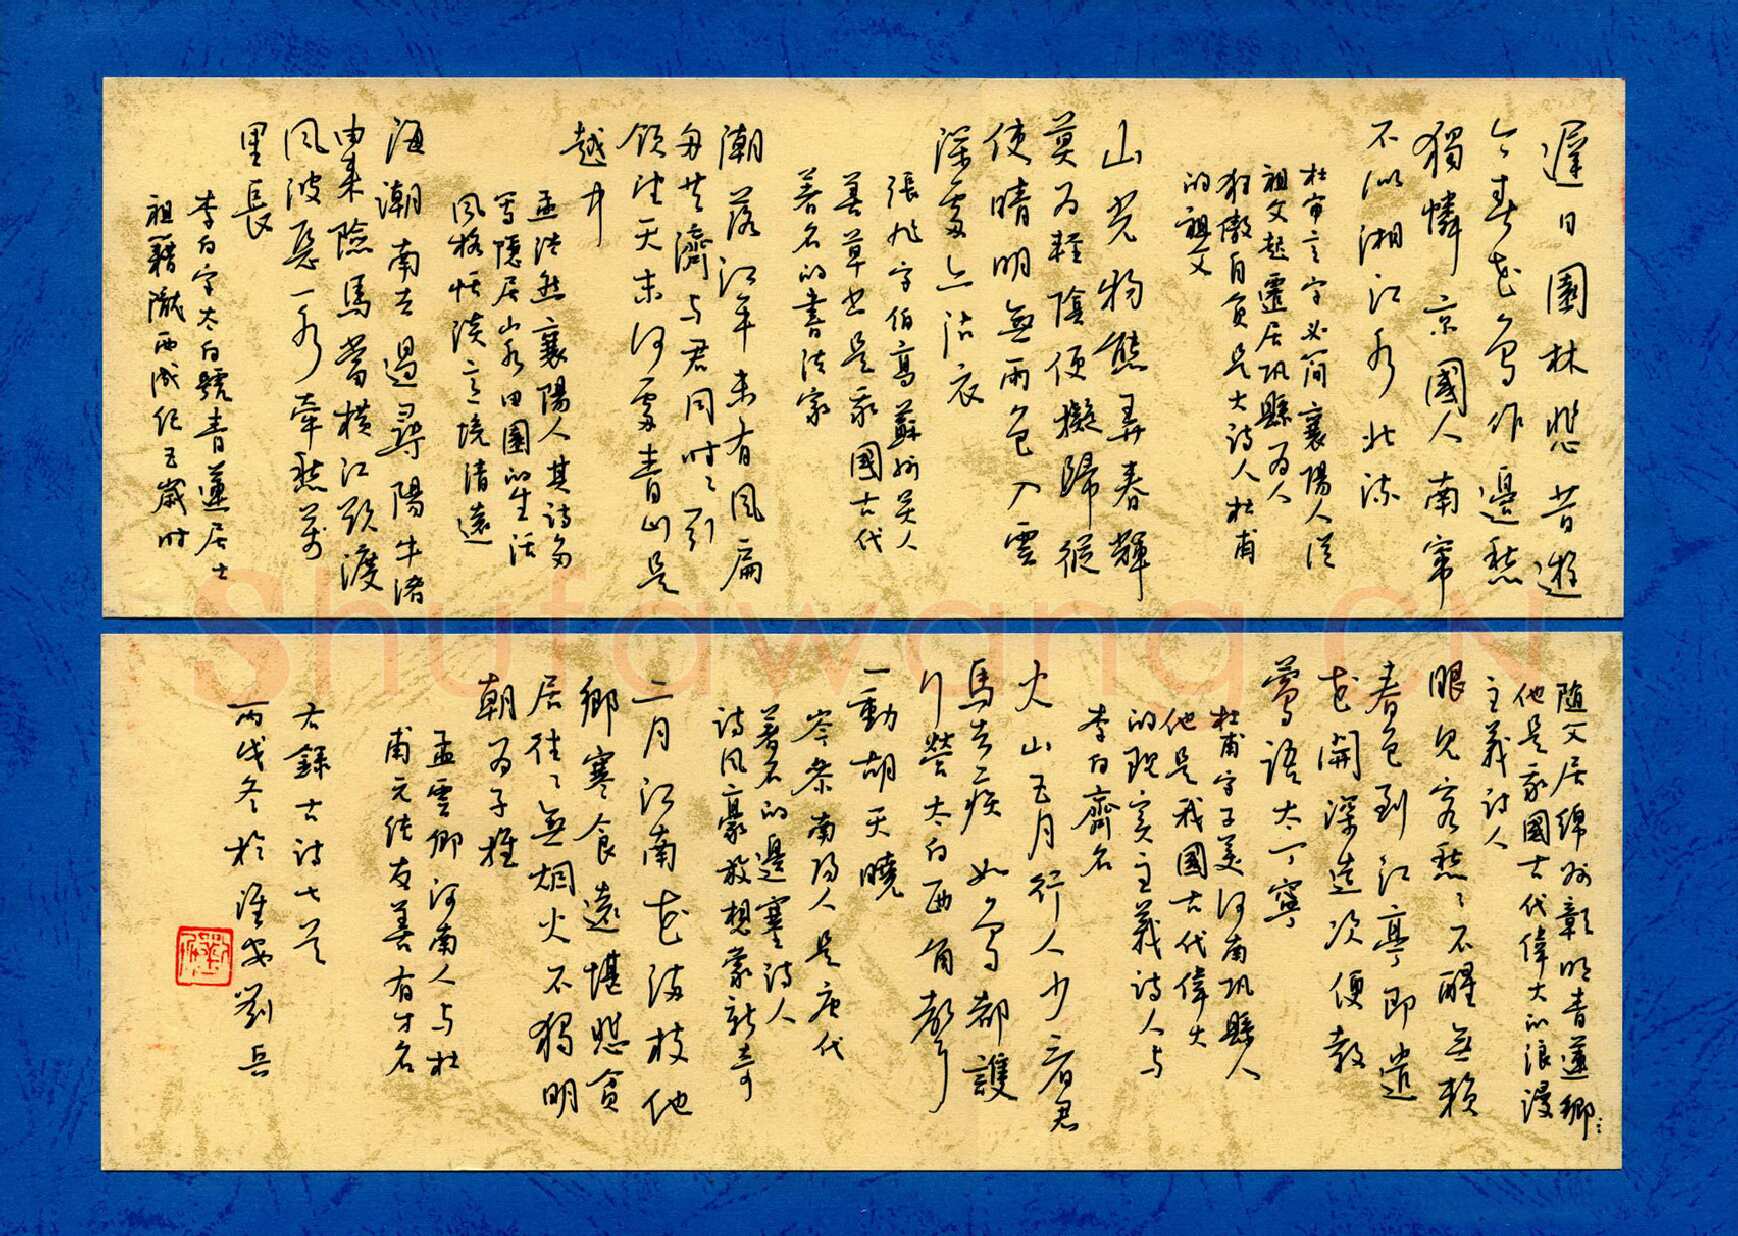 遲日園林悲昔遊
今春花鳥作邊愁
獨憐京國人南竄
不似湘江水北流
杜審言字必简襄陽人從
祖父起遷居巩縣为人
狂傲自負是大诗人杜甫
的祖父
山光物態弄春輝
莫为輕陰便擬歸縱
使晴明無雨色入雲
深處亦沾衣
張旭字伯高蘇州吴人
善草书是我國古代
著名的書法家
潮落江平未有風扁
舟共濟与君同时々引
领望天末何處青山是
越中
孟浩然襄陽人其诗多
写隱居山水田園的生活
风格恬淡意境清遠
海潮南去過尋陽牛渚
由来險馬當横江欲渡
风波惡一水牽愁萬
里長
李白字太白號青蓮居士
祖籍隴西成纪五歲时
随父居绵州彰明青蓮鄉
他是我國古代偉大的浪漫
主義诗人
眼见客愁々不醒無賴
春色到江亭即遣
花開深造次便教
鶯語太丁寧
杜甫字子美河南巩縣人
他是我國古代偉大
的现实主義诗人与
李白齊名
火山五月行人少看君
馬去疾如鳥都護
行營太白西角聲
一動胡天曉
岑参南阳人是唐代
著名的邊塞诗人
诗风豪放想象新奇
二月江南花滿枝他
鄉寒食遠堪悲貧
居往々無烟火不獨明
朝为子推
孟雲卿河南人与杜
甫元结友善有才名
右錄古诗七首
丙戌冬於淮安劉兵
Shufawang.CN